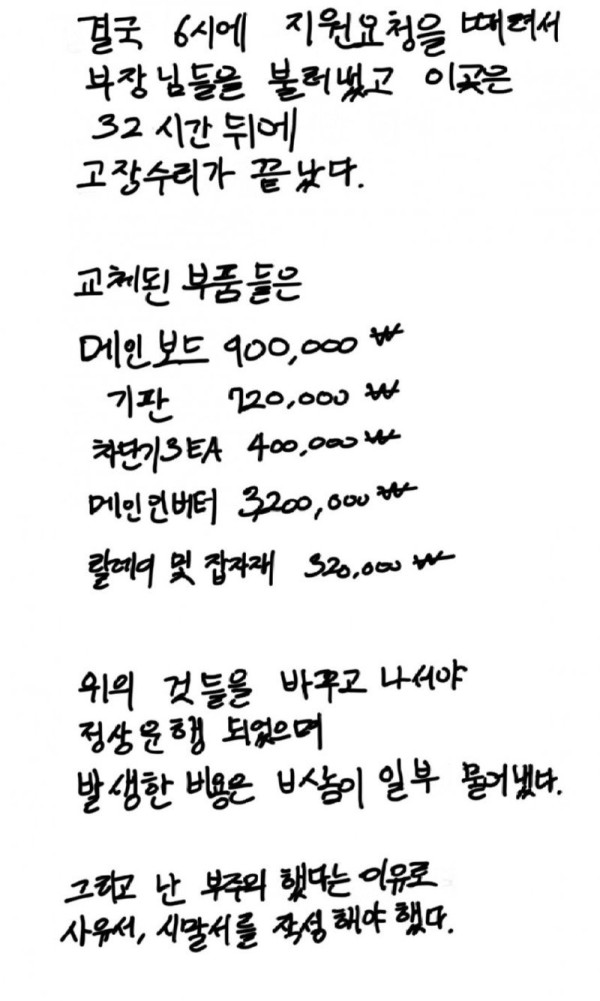 결국 6시에 지원요청을 때려서
부장님들을 불러냈고 이곳은
32시간 뒤에
고장수리가 끝났다.
교체된 부품들은
메인보드 900,000₩
기판 720,000₩
차단기3EA 400,000₩
메인인버터 3,200,000₩
릴레이 및 잡자재 320,000₩
위의 것들을 바꾸고 나서야
정상운행 되었으며
발생한 비용은 비상놈이 일부 물어냈다.
그리고 난 부주의 했다는 이유로
사유서, 시말서를 작성해야 했다.